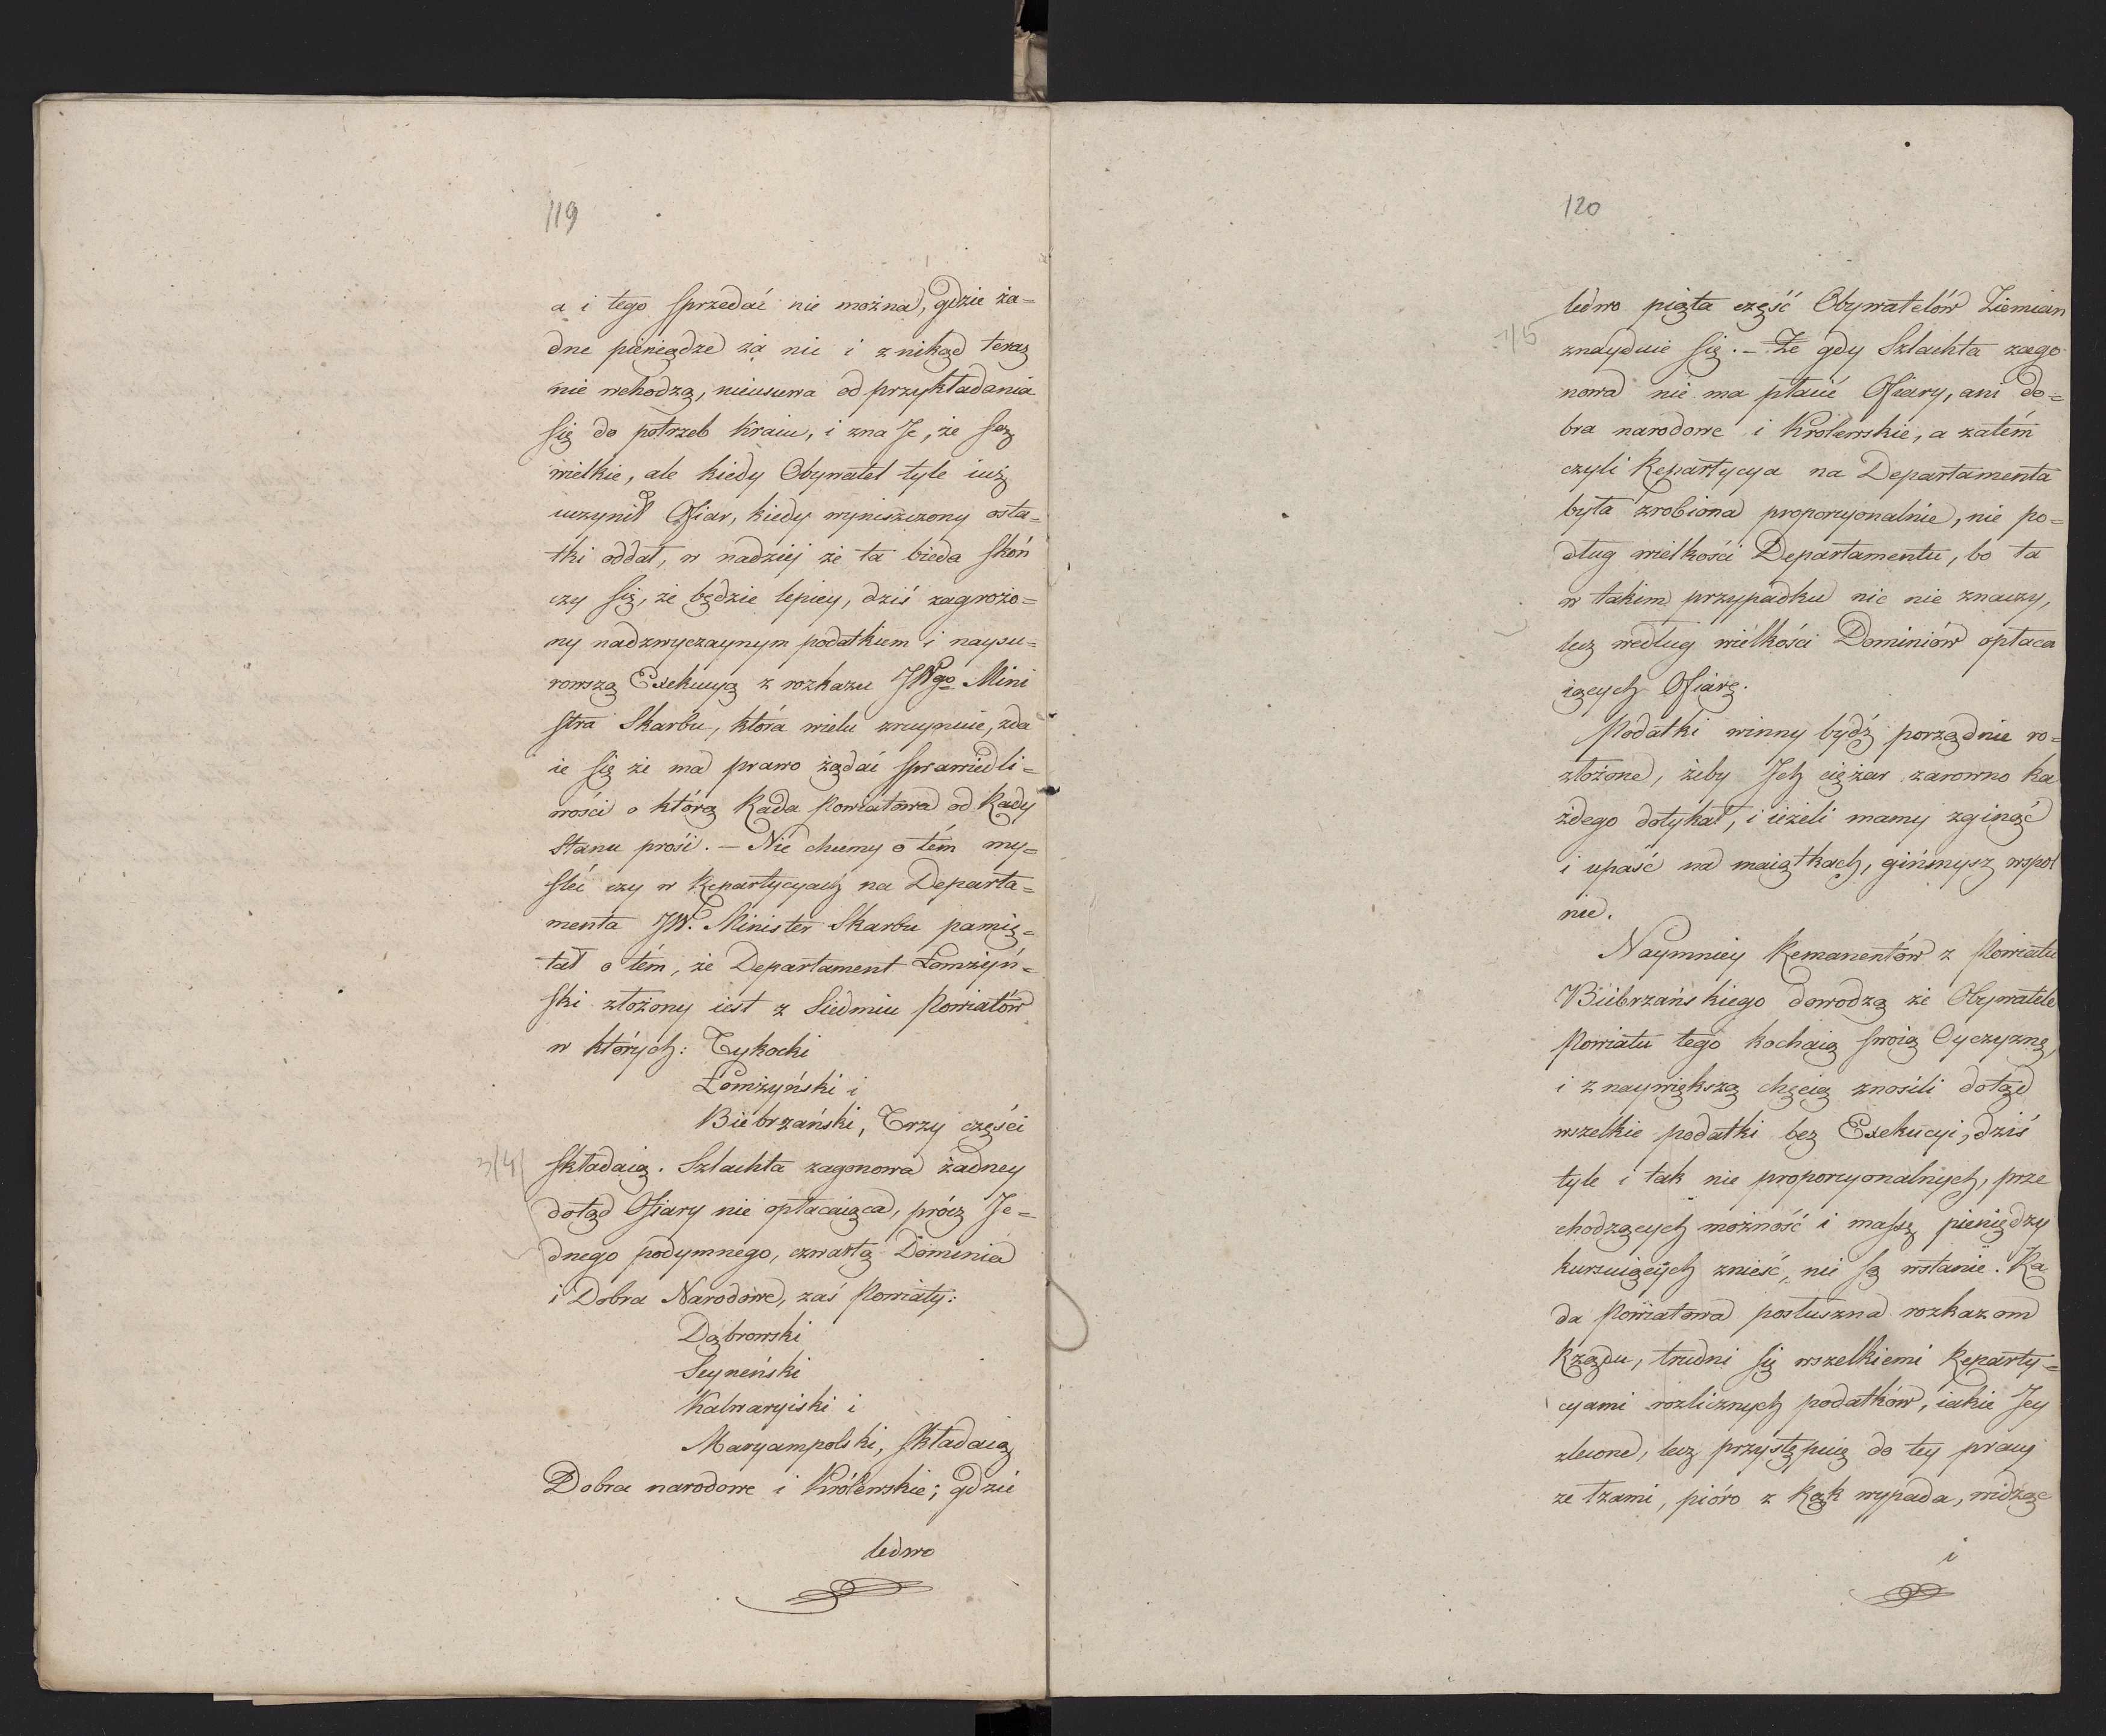 119
a i tego sprzedać nie można, gdzie ża=
dne pieniądze za nic i znikąd teraz
nie wchodzą, nieusuwa od przykładania
się do potrzeb Kraiu, i zna Je, że są
wielkie, ale kiedy Obywatel tyle iuż
uczynił Ofiar, kiedy wyniszczony osta=
tki oddał, w nadziej że ta bieda skoń
czy się, że będzie lepiey, dziś zagrożo=
ny nadzwyczaynym podatkiem i naysu=
rowszą Exekucyą z rozkazu JWgo Mini
stra Skarbu, która wielu zruynuie, zda
ie się że ma prawo żądać sprawiedli=
wości o którą Rada Powiatowa od Rady
Stanu prosi. — Nie chcemy o tém my=
śleć czy w Repartycyach na Departa=
menta JW. Minister Skarbu pamię=
tał o tém, że Departament Łomżyń=
ski złożony iest z Siedmiu Powiatów
w których: Tykocki
Łomżyński i
Biebrzański, Trzy części
3/4
składaią. Szlachta zagonowa żadney
dotąd Ofiary nie opłacaiąca, prócz Je=
dnego podymnego, czwartą Dominia
i Dobra Narodowe, zaś Powiaty:
Dąbrowski
Seyneński
Kalwaryiski i
Maryampolski, składaią
Dobra narodowe i Królewskie; gdzie
ledwo
120
ledwo piąta część Obywatelów Ziemian
1/5
znayduie się. — Że gdy Szlachta zago
nowa nie ma płacić Ofiary, ani do=
bra narodowe i Królewskie, a zatém
czyli Repartycya na Departamenta
była zrobiona proporcyonalnie, nie po=
dług wielkości Departamentu, bo ta
w takim przypadku nic nie znaczy,
lecz według wielkości Dominiów opłaca
iących Ofiarę.
Podatki winny bydź porządnie ro=
złożone, żeby Ich ciężar zarowno ka
żdego dotykał, i ieżeli mamy zginąć
i upaść na maiątkach, gińmysz wspol
nie.
Naymniey Remanentów z Powiatu
Biebrzańskiego dowodzą że Obywatele
Powiatu tego kochaią swoią Oyczyznę,
i z naywiększą chęcią znosili dotąd
wszelkie podatki bez Exekucyi, dziś
tyle i tak nie proporcyonalnych, prze
chodzących możność i massę pieniędzy
kursuiących znieść, nie są wstanie. Ra
da Powiatowa posłuszna rozkazom
Rządu, trudni się wszelkiemi Reparty=
cyami rozlicznych podatków, iakie Jey
zlecone, lecz przystępuią do tey pracy
ze łzami, pióro z Rąk wypada, widząc
i